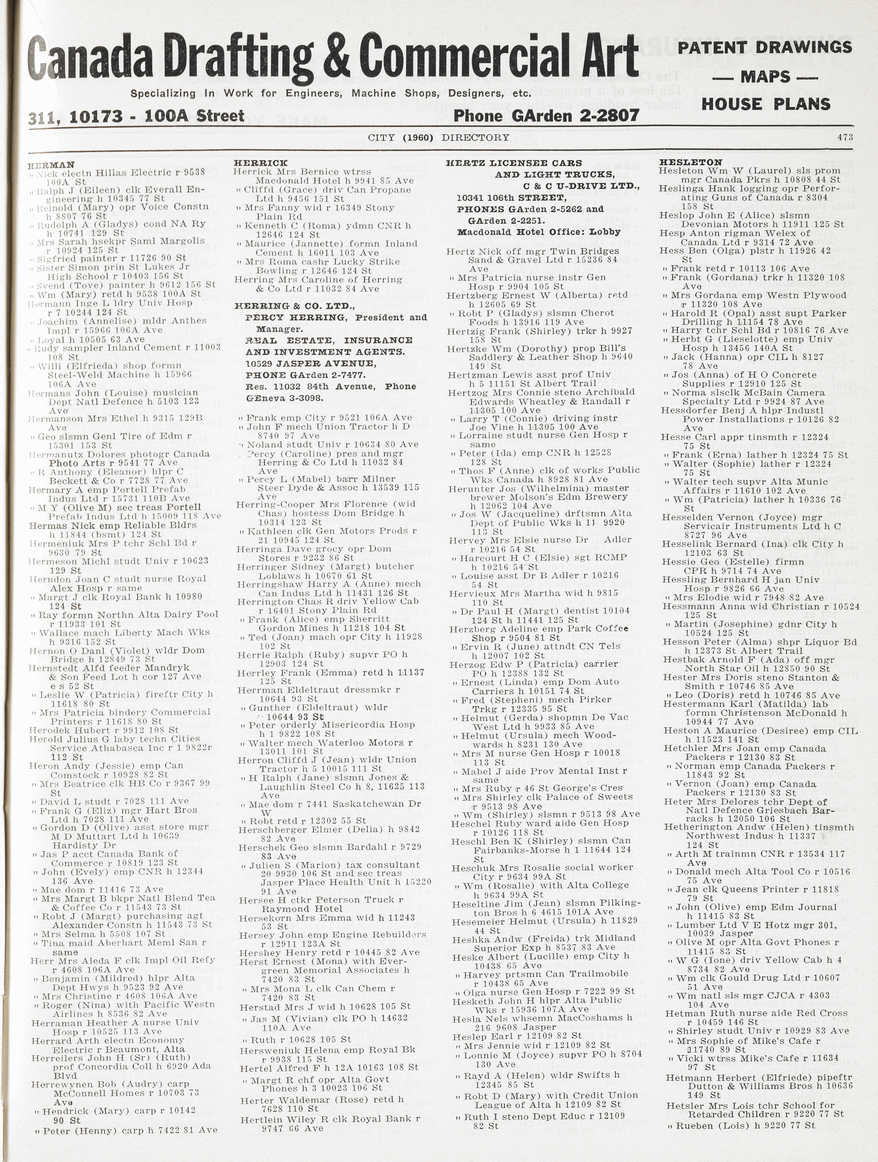 Canada Drafting & Commercial Art
Specializing In Work for Engineers, Machine Shops, Designers, etc.
311, 10173 - 100A Street Phone GArden 2-2807
PATENT DRAWINGS
— MAPS —
HOUSE PLANS
CITY (1960) DIRECTORY 473
HERMAN
" Nick electn Hillas Electric r 9538
100A St
" Ralph J (Eileen) clk Everall En-
gineering h 10345 77 St
" Reinold (Mary) opr Voice Constn
h 8807 76 St
" Rudolph A (Gladys) cond NA Ry
h 10741 129 St
" Mrs Sarah hsekpr Saml Margolis
r 10924 125 St
" Sigfried painter r 11726 90 St
" Sister Simon prin St Lukes Jr
High School r 10403 156 St
" Svend (Tove) painter h 9612 156 St
" Wm (Mary) retd h 9538 100A St
Hermann Inge L ldry Univ Hosp
r 7 10244 124 St
" Joachim (Annelise) mldr Anthes
Impl r 15966 106A Ave
" Loyal h 10505 63 Ave
" Rudy sampler Inland Cement r 11003
108 St
" Willi (Elfrieda) shop formn
Steel-Weld Machine h 15966
106A Ave
Hermans John (Louise) musician
Dept Natl Defence h 5103 123
Ave
Hermanson Mrs Ethel h 9315 129B
Ave
" Geo slsmn Genl Tire of Edm r
15301 153 St
Hermanutz Dolores photogr Canada
Photo Arts r 9541 77 Ave
" R Anthony (Eleanor) hlpr C
Beckett & Co r 7728 77 Ave
Hermary A emp Portell Prefab
Indus Ltd r 15731 110B Ave
" M Y (Olive M) sec treas Portell
Prefab Indus Ltd h 15009 118 Ave
Hermas Nick emp Reliable Bldrs
h 11844 (bsmt) 124 St
Hermeniuk Mrs P tchr Schl Bd r
9630 79 St
Hermeson Michl studt Univ r 10623
129 St
Herndon Joan C studt nurse Royal
Alex Hosp r same
" Margt J clk Royal Bank h 10980
124 St
" Ray formn Northn Alta Dairy Pool
r 11933 101 St
" Wallace mach Liberty Mach Wks
h 9316 152 St
Hernon O Danl (Violet) wldr Dom
Bridge h 12849 73 St
Hernstedt Alfd feeder Mandryk
& Son Feed Lot h cor 127 Ave
e s 52 St
" Leslie W (Patricia) fireftr City h
11618 80 St
" Mrs Patricia bindery Commercial
Printers r 11618 80 St
Herodek Hubert r 9912 108 St
Herold Julius G laby techn Cities
Service Athabasca Inc r 1 9822r
112 St
Heron Andy (Jessie) emp Can
Comstock r 10928 82 St
" Mrs Beatrice clk HB Co r 9367 99
St
" David L studt r 7028 111 Ave
" Frank G (Eliz) mgr Hart Bros
Ltd h 7028 111 Ave
" Gordon D (Olive) asst store mgr
M D Muttart Ltd h 10639
Hardisty Dr
" Jas P acct Canada Bank of
Commerce r 10819 123 St
" John (Evely) emp CNR h 12344
136 Ave
" Mae dom r 11416 73 Ave
" Mrs Margt B bkpr Natl Blend Tea
& Coffee Co r 11543 73 St
" Robt J (Margt) purchasing agt
Alexander Constn h 11543 73 St
" Mrs Selma h 5508 107 St
" Tina maid Aberhart Meml San r
same
Herr Mrs Aleda F clk Impl Oil Refy
r 4608 106A Ave
" Benjamin (Mildred) hlpr Alta
Dept Hwys h 9523 92 Ave
" Mrs Christine r 4608 106A Ave
" Roger (Nina) with Pacific Westn
Airlines h 8536 82 Ave
Herraman Heather A nurse Univ
Hosp r 10525 113 Ave
Herrard Arth electn Economy
Electric r Beaumont, Alta
Herreilers John H (Sr) (Ruth)
prof Concordia Coll h 6920 Ada
Blvd
Herrewynen Bob (Audry) carp
McConnell Homes r 10703 73
Ave
" Hendrick (Mary) carp r 10142
90 St
" Peter (Henny) carp h 7422 81 Ave
HERRICK
Herrick Mrs Bernice wtrss
Macdonald Hotel h 9941 85 Ave
" Cliffd (Grace) driv Can Propane
Ltd h 9456 151 St
" Mrs Fanny wid r 16349 Stony
Plain Rd
" Kenneth C (Roma) ydmn CNR h
12646 124 St
" Maurice (Jannette) formn Inland
Cement h 16011 103 Ave
" Mrs Roma cashr Lucky Strike
Bowling r 12646 124 St
Herring Mrs Caroline of Herring
& Co Ltd r 11032 84 Ave
HERRING & CO. LTD.,
PERCY HERRING, President and
Manager.
REAL ESTATE, INSURANCE
AND INVESTMENT AGENTS.
10529 JASPER AVENUE,
PHONE GArden 2-7477.
Res. 11032 84th Avenue, Phone
GEneva 3-3098.
" Frank emp City r 9521 106A Ave
" John F mech Union Tractor h D
8740 97 Ave
" Noland studt Univ r 10634 80 Ave
" Percy (Caroline) pres and mgr
Herring & Co Ltd h 11032 84
Ave
" Percy L (Mabel) barr Milner
Steer Dyde & Assoc h 13539 115
Ave
Herring-Cooper Mrs Florence (wid
Chas) hostess Dom Bridge h
10314 123 St
" Kathleen clk Gen Motors Prods r
21 10945 124 St
Herringa Dave grocy opr Dom
Stores r 9232 86 St
Herringer Sidney (Margt) butcher
Loblaws h 10670 61 St
Herringshaw Harry A (Anne) mech
Can Indus Ltd h 11431 126 St
Herrington Chas R driv Yellow Cab
r 16401 Stony Plain Rd
" Frank (Alice) emp Sherritt
Gordon Mines h 11218 104 St
" Ted (Joan) mach opr City h 11928
102 St
Herrle Ralph (Ruby) supvr PO h
12903 124 St
Herrley Frank (Emma) retd h 11137
125 St
Herrman Eldeltraut dressmkr r
10644 93 St
" Gunther (Eldeltraut) wldr
10644 93 St
" Peter orderly Misericordia Hosp
h 1 9822 108 St
" Walter mech Waterloo Motors r
13011 101 St
Herron Cliffd J (Jean) wldr Union
Tractor h 5 10015 111 St
" H Ralph (Jane) slsmn Jones &
Laughlin Steel Co h 8, 11625 113
Ave
" Mae dom r 7441 Saskatchewan Dr
W
" Robt retd r 12302 55 St
Herschberger Elmer (Delia) h 9842
82 Ave
Herschek Geo slsmn Bardahl r 9729
83 Ave
" Julien S (Marion) tax consultant
20 9930 106 St and sec treas
Jasper Place Health Unit h 15220
91 Ave
Hersee H ctkr Peterson Truck r
Raymond Hotel
Hersekorn Mrs Emma wid h 11243
53 St
Hersey John emp Engine Rebuilders
r 12911 123A St
Hershey Henry retd r 10445 82 Ave
Herst Ernest (Mona) with Ever-
green Memorial Associates h
7420 83 St
" Mrs Mona L clk Can Chem r
7420 83 St
Herstad Mrs J wid h 10628 105 St
" Jas M (Vivian) clk PO h 14632
110A Ave
" Ruth r 10628 105 St
Hersweniuk Helena emp Royal Bk
r 9938 115 St
Hertel Alfred F h 12A 10163 108 St
" Margt R chf opr Alta Govt
Phones h 3 10023 106 St
Herter Waldemar (Rose) retd h
7628 110 St
Hertlein Wiley R clk Royal Bank r
9747 66 Ave
HERTZ LICENSEE CARS
AND LIGHT TRUCKS,
C & C U-DRIVE LTD.,
10341 106th STREET,
PHONES GArden 2-5262 and
GArden 2-2251.
Macdonald Hotel Office: Lobby
Hertz Nick off mgr Twin Bridges
Sand & Gravel Ltd r 15236 84
Ave
" Mrs Patricia nurse instr Gen
Hosp r 9904 105 St
Hertzberg Ernest W (Alberta) retd
h 12605 69 St
" Robt P (Gladys) slsmn Cherot
Foods h 13916 119 Ave
Hertzig Frank (Shirley) trkr h 9927
158 St
Hertzke Wm (Dorothy) prop Bill's
Saddlery & Leather Shop h 9640
149 St
Hertzman Lewis asst prof Univ
h 5 11151 St Albert Trail
Hertzog Mrs Connie steno Archibald
Edwards Wheatley & Randall r
14305 100 Ave
" Larry T (Connie) driving instr
Joe Vine h 14305 100 Ave
" Lorraine studt nurse Gen Hosp r
same
" Peter (Ida) emp CNR h 12528
128 St
" Thos F (Anne) clk of works Public
Wks Canada h 8928 81 Ave
Herunter Jos (Wilhelmina) master
brewer Molson's Edm Brewery
h 12062 104 Ave
" Jos W (Jacqueline) drftsmn Alta
Dept of Public Wks h 11 9920
113 St
Hervey Mrs Elsie nurse Dr Adler
r 10216 54 St
" Harcourt H C (Elsie) sgt RCMP
h 10216 54 St
" Louise asst Dr B Adler r 10216
54 St
Hervieux Mrs Martha wid h 9815
110 St
" Dr Paul H (Margt) dentist 10104
124 St h 11441 125 St
Herzberg Adeline emp Park Coffee
Shop r 9504 81 St
" Ervin R (June) attndt CN Tels
h 12007 102 St
Herzog Edw P (Patricia) carrier
PO h 12388 132 St
" Ernest (Linda) emp Dom Auto
Carriers h 10151 74 St
" Fred (Stephen) mech Pirker
Trkg r 12335 95 St
" Helmut (Gerda) shopmn De Vac
West Ltd h 9933 85 Ave
" Helmut (Ursula) mech Wood-
wards h 8231 130 Ave
" Mrs M nurse Gen Hosp r 10018
113 St
" Mabel J aide Prov Mental Inst r
same
" Mrs Ruby r 46 St George's Cres
" Mrs Shirley clk Palace of Sweets
r 9513 98 Ave
" Wm (Shirley) slsmn r 9513 98 Ave
Heschel Ruby ward aide Gen Hosp
r 10126 118 St
Heschl Ben K (Shirley) slsmn Can
Fairbanks-Morse h 1 11644 124
St
Heschuk Mrs Rosalie social worker
City r 9634 99A St
" Wm (Rosalie) with Alta College
h 9634 99A St
Heseltine Jim (Jean) slsmn Pilking-
ton Bros h 6 4615 101A Ave
Hesemeier Helmut (Ursula) h 11829
44 St
Heshka Andw (Freida) trk Midland
Superior Exp h 8537 83 Ave
Heske Albert (Lucille) emp City h
10438 65 Ave
" Harvey prtsmn Can Trailmobile
r 10438 65 Ave
" Olga nurse Gen Hosp r 7222 99 St
Hesketh John H hlpr Alta Public
Wks r 15936 107A Ave
Hesla Nels whsemn MacCoshams h
216 9608 Jasper
Heslep Earl r 12109 82 St
" Mrs Jennie wid r 12109 82 St
" Lonnie M (Joyce) supvr PO h 8704
130 Ave
" Rayd A (Helen) wldr Swifts h
12345 85 St
" Robt D (Mary) with Credit Union
League of Alta h 12109 82 St
" Ruth I steno Dept Educ r 12109
82 St
HESLETON
Hesleton Wm W (Laurel) sls prom
mgr Canada Pkrs h 10808 44 St
Heslinga Hank logging opr Perfor-
ating Guns of Canada r 8304
158 St
Heslop John E (Alice) slsmn
Devonian Motors h 11911 125 St
Hesp Anton rigman Welex of
Canada Ltd r 9314 72 Ave
Hess Ben (Olga) plstr h 11926 42
St
" Frank retd r 10113 106 Ave
" Frank (Gordana) trkr h 11320 108
Ave
" Mrs Gordana emp Westn Plywood
r 11320 108 Ave
" Harold R (Opal) asst supt Parker
Drilling h 11154 78 Ave
" Harry tchr Schl Bd r 10816 76 Ave
" Herbt G (Lieselotte) emp Univ
Hosp h 13456 140A St
" Jack (Hanna) opr CIL h 8127
78 Ave
" Jos (Anna) of H O Concrete
Supplies r 12910 125 St
" Norma slsclk McBain Camera
Specialty Ltd r 9924 87 Ave
Hessdorfer Benj A hlpr Industl
Power Installations r 10126 82
Ave
Hesse Carl appr tinsmth r 12324
75 St
" Frank (Erna) lather h 12324 75 St
" Walter (Sophie) lather r 12324
75 St
" Walter tech supvr Alta Munic
Affairs r 11610 102 Ave
" Wm (Patricia) lather h 10336 76
St
Hesselden Vernon (Joyce) mgr
Servicair Instruments Ltd h C
8727 96 Ave
Hesselink Bernard (Ina) clk City h
12103 63 St
Hessie Geo (Estelle) firmn
CPR h 9714 74 Ave
Hessling Bernhard H jan Univ
Hosp r 9826 66 Ave
" Mrs Elodie wid r 7948 82 Ave
Hessmann Anna wid Christian r 10524
125 St
" Martin (Josephine) gdnr City h
10524 125 St
Hesson Peter (Alma) shpr Liquor Bd
h 12373 St Albert Trail
Hestbak Arnold F (Ada) off mgr
North Star Oil h 12850 90 St
Hester Mrs Doris steno Stanton &
Smith r 10746 85 Ave
" Leo (Doris) retd h 10746 85 Ave
Hestermann Karl (Matilda) lab
formn Christenson McDonald h
10944 77 Ave
Heston A Maurice (Desiree) emp CIL
h 11523 141 St
Hetchler Mrs Joan emp Canada
Packers r 12130 83 St
" Norman emp Canada Packers r
11843 92 St
" Vernon (Joan) emp Canada
Packers r 12130 83 St
Heter Mrs Delores tchr Dept of
Natl Defence Griesbach Bar-
racks h 12050 106 St
Hetherington Andw (Helen) tinsmth
Northwest Indus h 11337
124 St
" Arth M trainmn CNR r 13534 117
Ave
" Donald mech Alta Tool Co r 10516
75 Ave
" Jean clk Queens Printer r 11818
79 St
" John (Olive) emp Edm Journal
h 11415 83 St
" Lumber Ltd V E Hotz mgr 301,
10039 Jasper
" Olive M opr Alta Govt Phones r
11415 83 St
" W G (Ione) driv Yellow Cab h 4
8734 82 Ave
" Wm clk Gould Drug Ltd r 10607
51 Ave
" Wm natl sls mgr CJCA r 4303
104 Ave
Hetman Ruth nurse aide Red Cross
r 10459 146 St
" Shirley studt Univ r 10929 83 Ave
" Mrs Sophie of Mike's Cafe r
11740 89 St
" Vicki wtrss Mike's Cafe r 11634
97 St
Hetmann Herbert (Elfriede) pipeftr
Dutton & Williams Bros h 10636
149 St
Hetsler Mrs Lois tchr School for
Retarded Children r 9220 77 St
" Rueben (Lois) h 9220 77 St